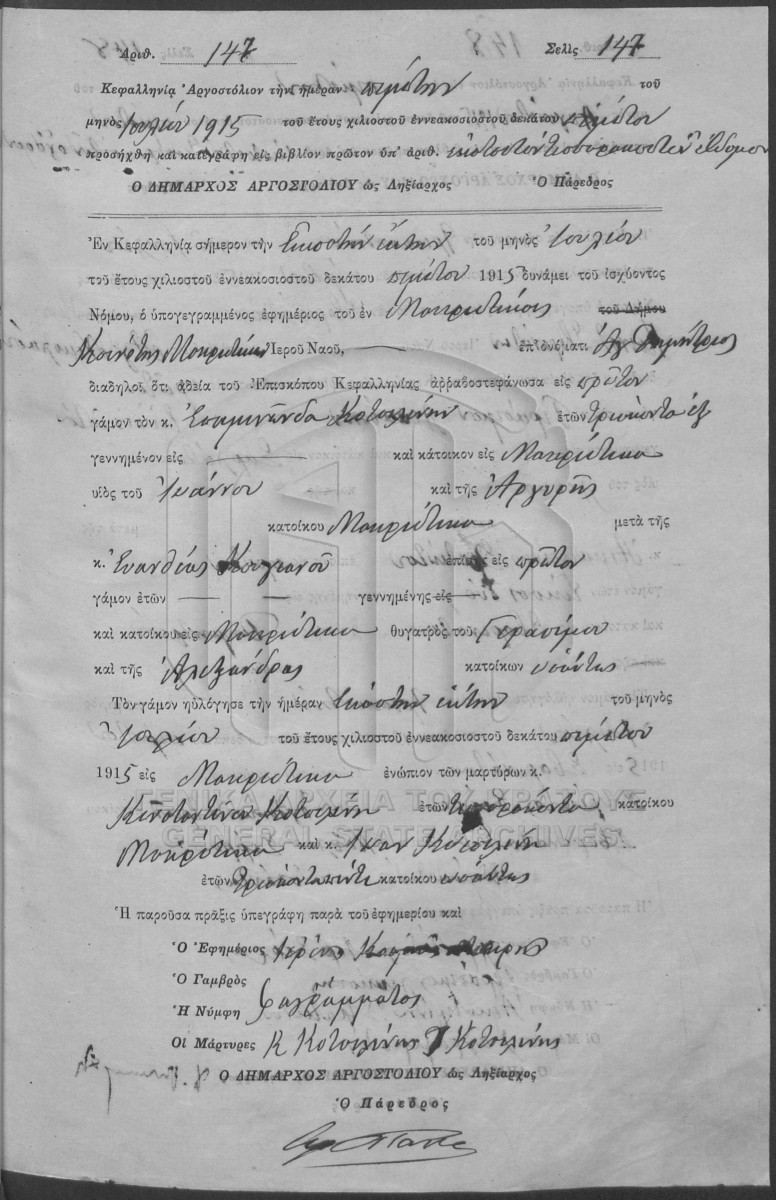 Ἀριθ. 147 Σελὶς 147
Κεφαλληνίᾳ Ἀργοστόλιον τὴν ἡμέραν πέμπτην τοῦ
μηνὸς Ἰουλίου 1915 τοῦ ἔτους χιλιοστοῦ ἐννεακοσιοστοῦ δεκάτου πέμπτου
προσήχθη καὶ κατεγράφη εἰς βιβλίον πρῶτον ὑπ' ἀριθ. ἑκατοστὸν τεσσαρακοστὸν ἕβδομον
Ὁ ΔΗΜΑΡΧΟΣ ΑΡΓΟΣΤΟΛΙΟΥ ὡς Ληξίαρχος Ὁ Πάρεδρος
Ἐν Κεφαλληνίᾳ σήμερον τὴν Εἰκοστὴν ἕκτην τοῦ μηνὸς Ἰουλίου
τοῦ ἔτους χιλιοστοῦ ἐννεακοσιοστοῦ δεκάτου πέμπτου 1915 δυνάμει τοῦ ἰσχύοντος
Νόμου, ὁ ὑπογεγραμμένος ἐφημέριος τοῦ ἐν Μακρυωτίκοις τοῦ Δήμου
Κοινότης Μακρυωτίκων Ἱεροῦ Ναοῦ, ἐπ' ὀνόματι Ἁγ Δημήτριος
διαδηλοῖ ὅτι ἀδείᾳ τοῦ Ἐπισκόπου Κεφαλληνίας ἀρραβοστεφάνωσα εἰς πρῶτον
γάμον τὸν κ. Ἐπαμινώνδα ἐτῶν τριάκοντα ἓξ
γεννημένον εἰς καὶ κάτοικον εἰς Μακρυώτικα
υἱὸς τοῦ Ἰωάννου καὶ τῆς Ἀργυρῆς
κατοίκου Μακρυώτικα μετὰ τῆς
κ. Εὐανθίας ἐπίσης εἰς πρῶτον
γάμον ἐτῶν γεννημένης εἰς
καὶ κατοίκου εἰς Μακρυώτικα θυγατρὸς τοῦ Γερασίμου
καὶ τῆς Ἀλεξάνδρας κατοίκων ὡσαύτως
Τὸν γάμον ηὐλόγησε τὴν ἡμέραν Εἰκοστὴν ἕκτην τοῦ μηνὸς
Ἰουλίου τοῦ ἔτους χιλιοστοῦ ἐννεακοσιοστοῦ δεκάτου πέμπτου
1915 εἰς Μακρυώτικα ἐνώπιον τῶν μαρτύρων κ.
Κωνσταντίνου ἐτῶν κατοίκου
Μακρυώτικα καὶ κ.
ἐτῶν τριάκοντα πέντε κατοίκου ὡσαύτως
Ἡ παροῦσα πρᾶξις ὑπεγράφη παρὰ τοῦ ἐφημερίου καὶ
Ὁ Ἐφημέριος
Ὁ Γαμβρὸς
Ἡ Νύμφη ἀγράμματος
Οἱ Μάρτυρες
Ὁ ΔΗΜΑΡΧΟΣ ΑΡΓΟΣΤΟΛΙΟΥ ὡς Ληξίαρχος
Ὁ Πάρεδρος
ΓΕΝΙΚΑ ΑΡΧΕΙΑ ΤΟΥ ΚΡΑΤΟΥΣ
GENERAL STATE ARCHIVES